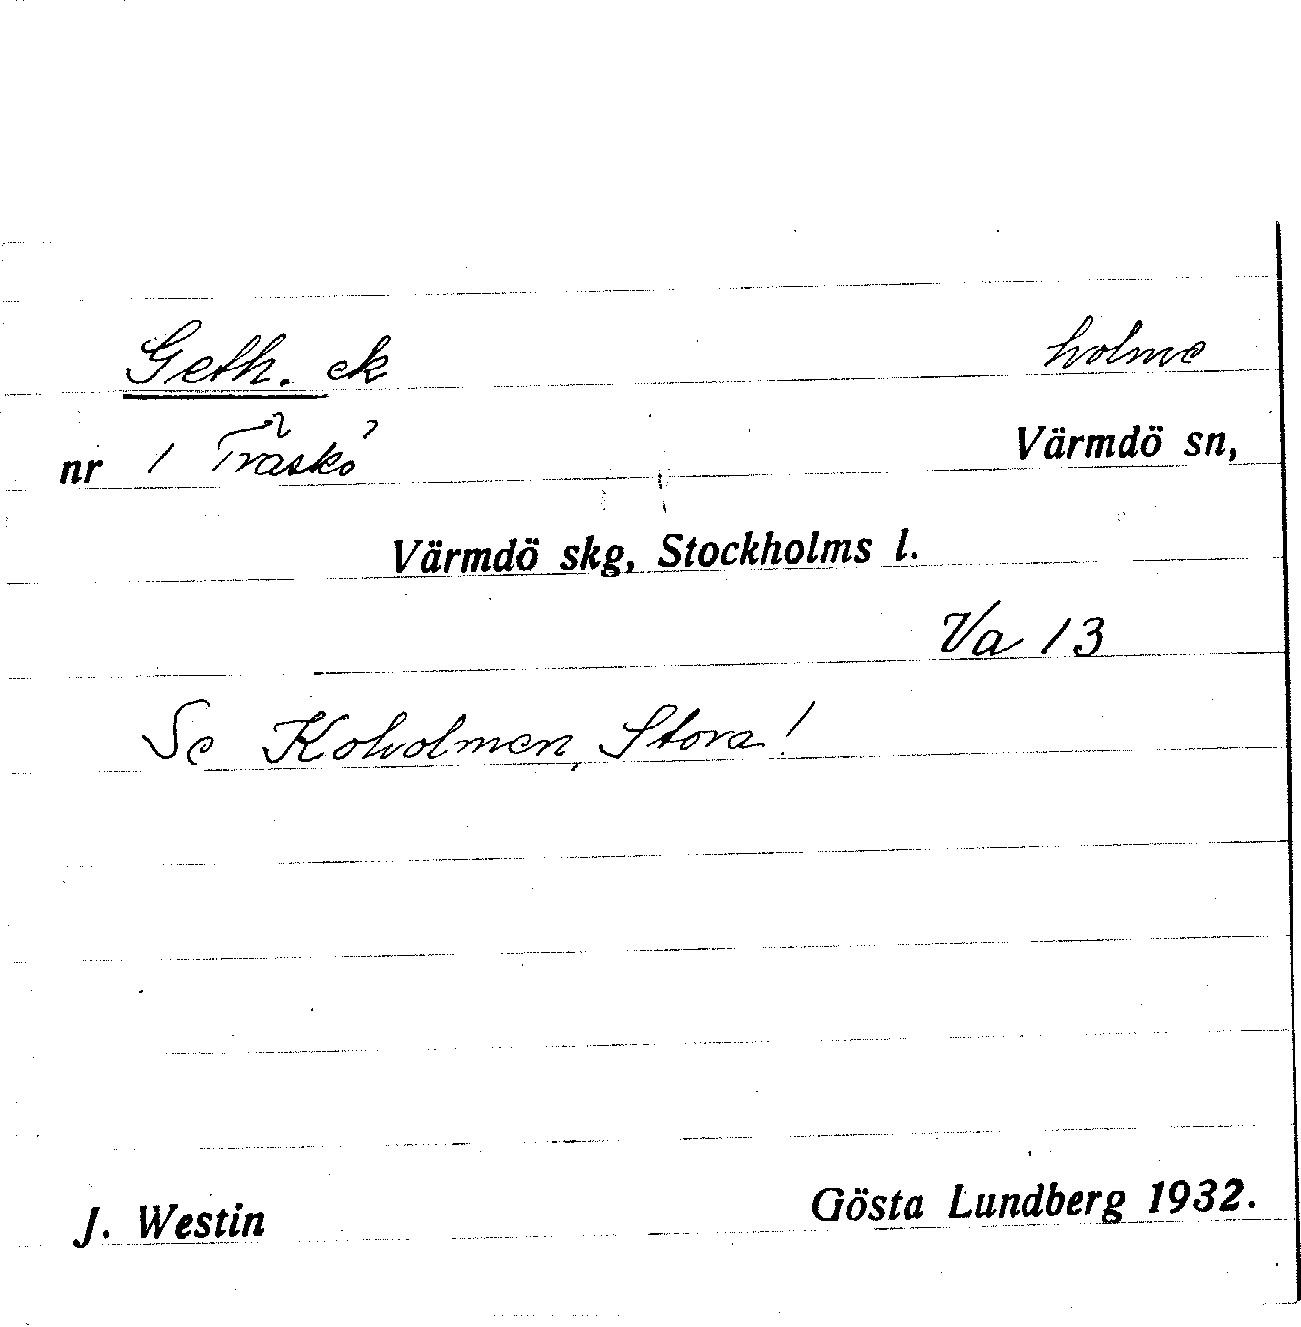 Geth. ek holme
nr 1 Träskö Värmdö sn,
Värmdö skg, Stockholms l.
Va 13
Se Koholmen, Stora!
J. Westin Gösta Lundberg 1932.